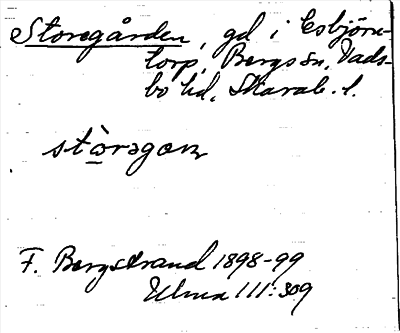 Storegården, gd i Esbjörn-
torp, Bergs sn, Vads-
bo hd, Skarab. l.
stòragan
F. Bergstrand 1898-99
Ulma 111:309